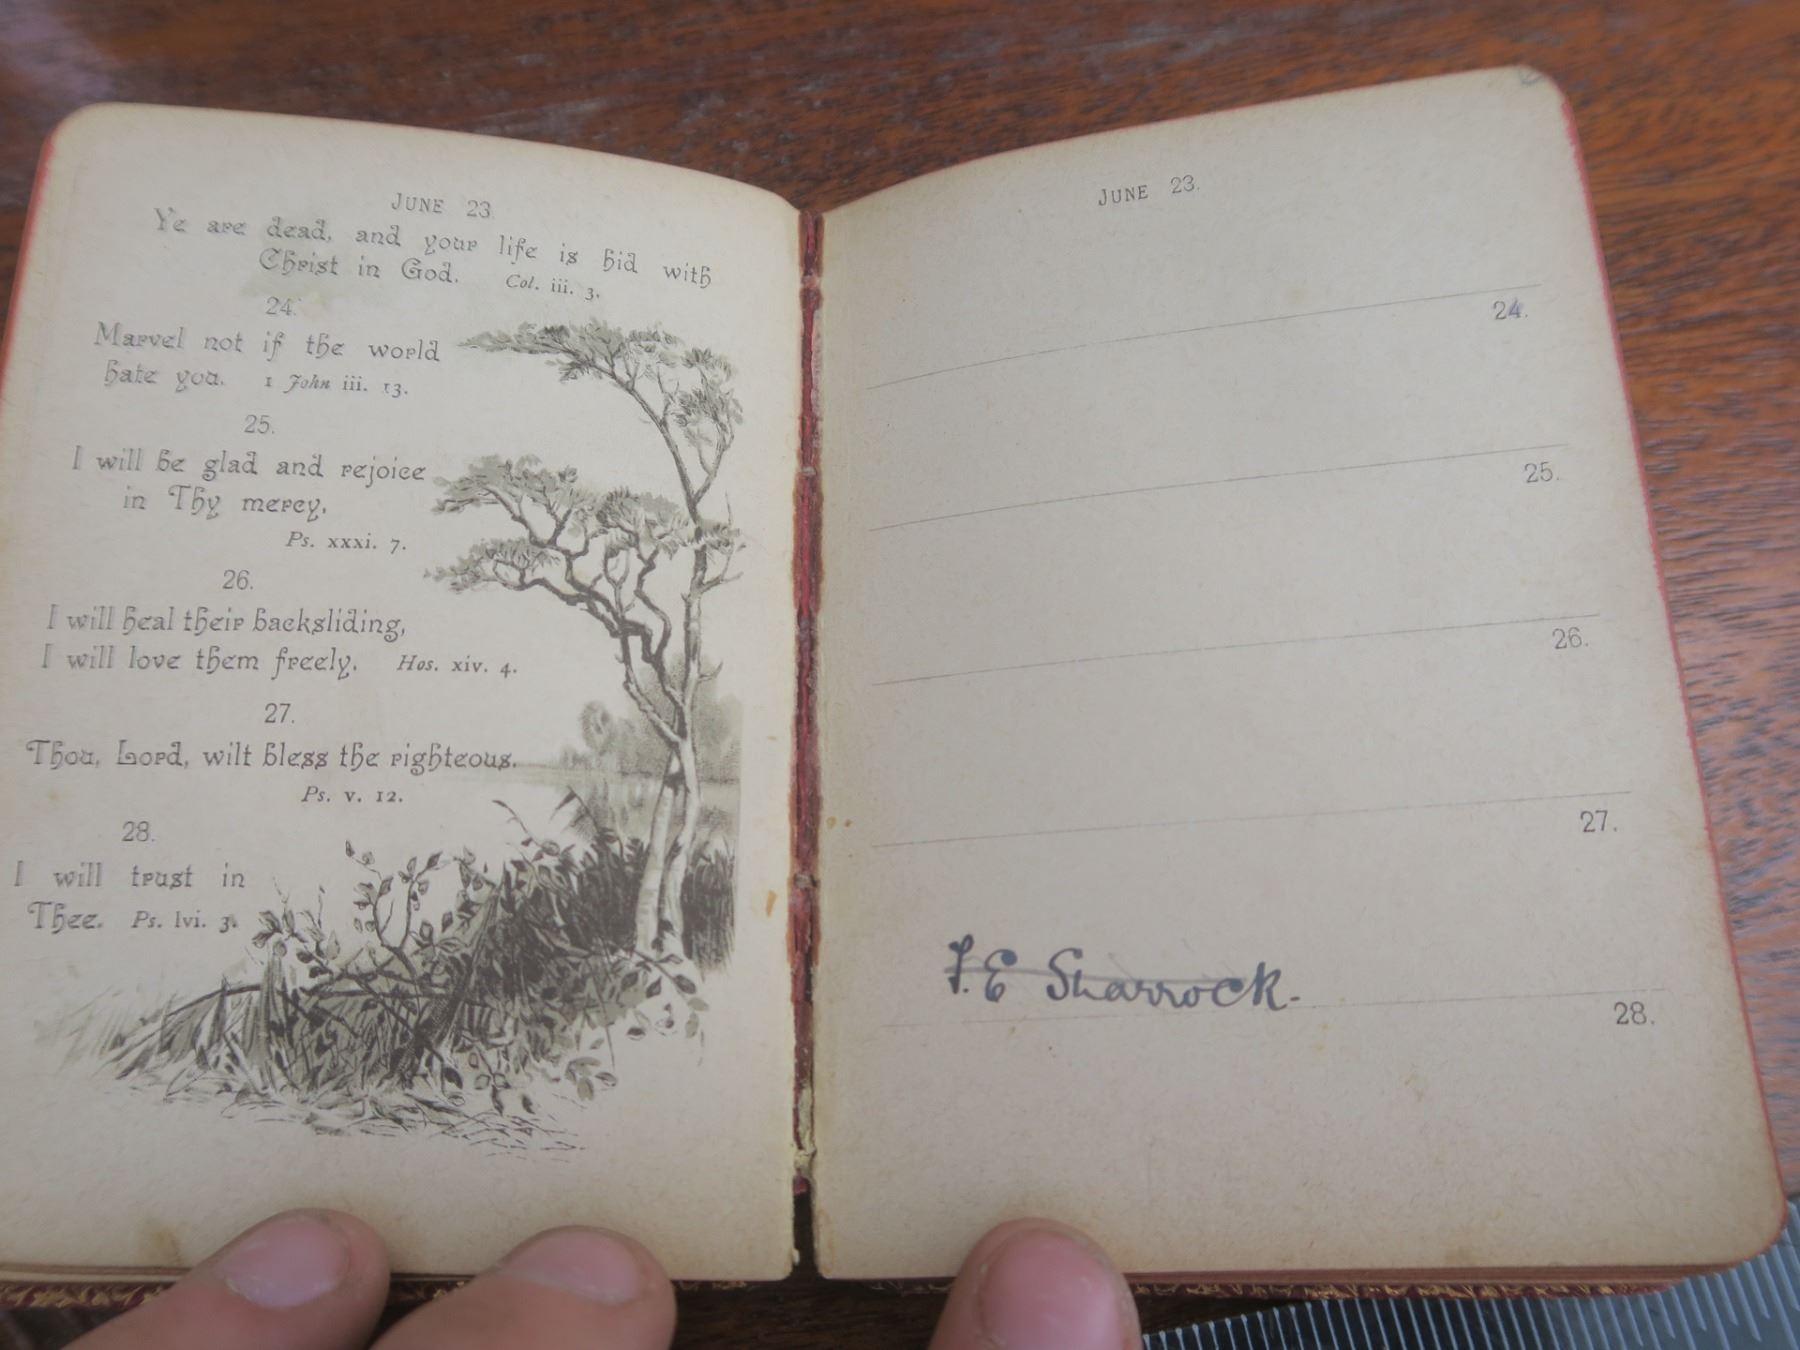 JUNE 23.
Ye are dead, and your life is hid with
Christ in God. Col. iii. 3.
24.
Marvel not if the world
hate you. 1 John iii. 13.
25.
I will be glad and rejoice
in Thy mercy.
Ps. xxxi. 7.
26.
I will heal their backsliding,
I will love them freely. Hos. xiv. 4.
27.
Thou, Lord, wilt bless the righteous.
Ps. v. 12.
28.
I will trust in
Thee. Ps. lvi. 3.
JUNE 23.
24.
25.
26.
27.
F. E Sharrock.
28.